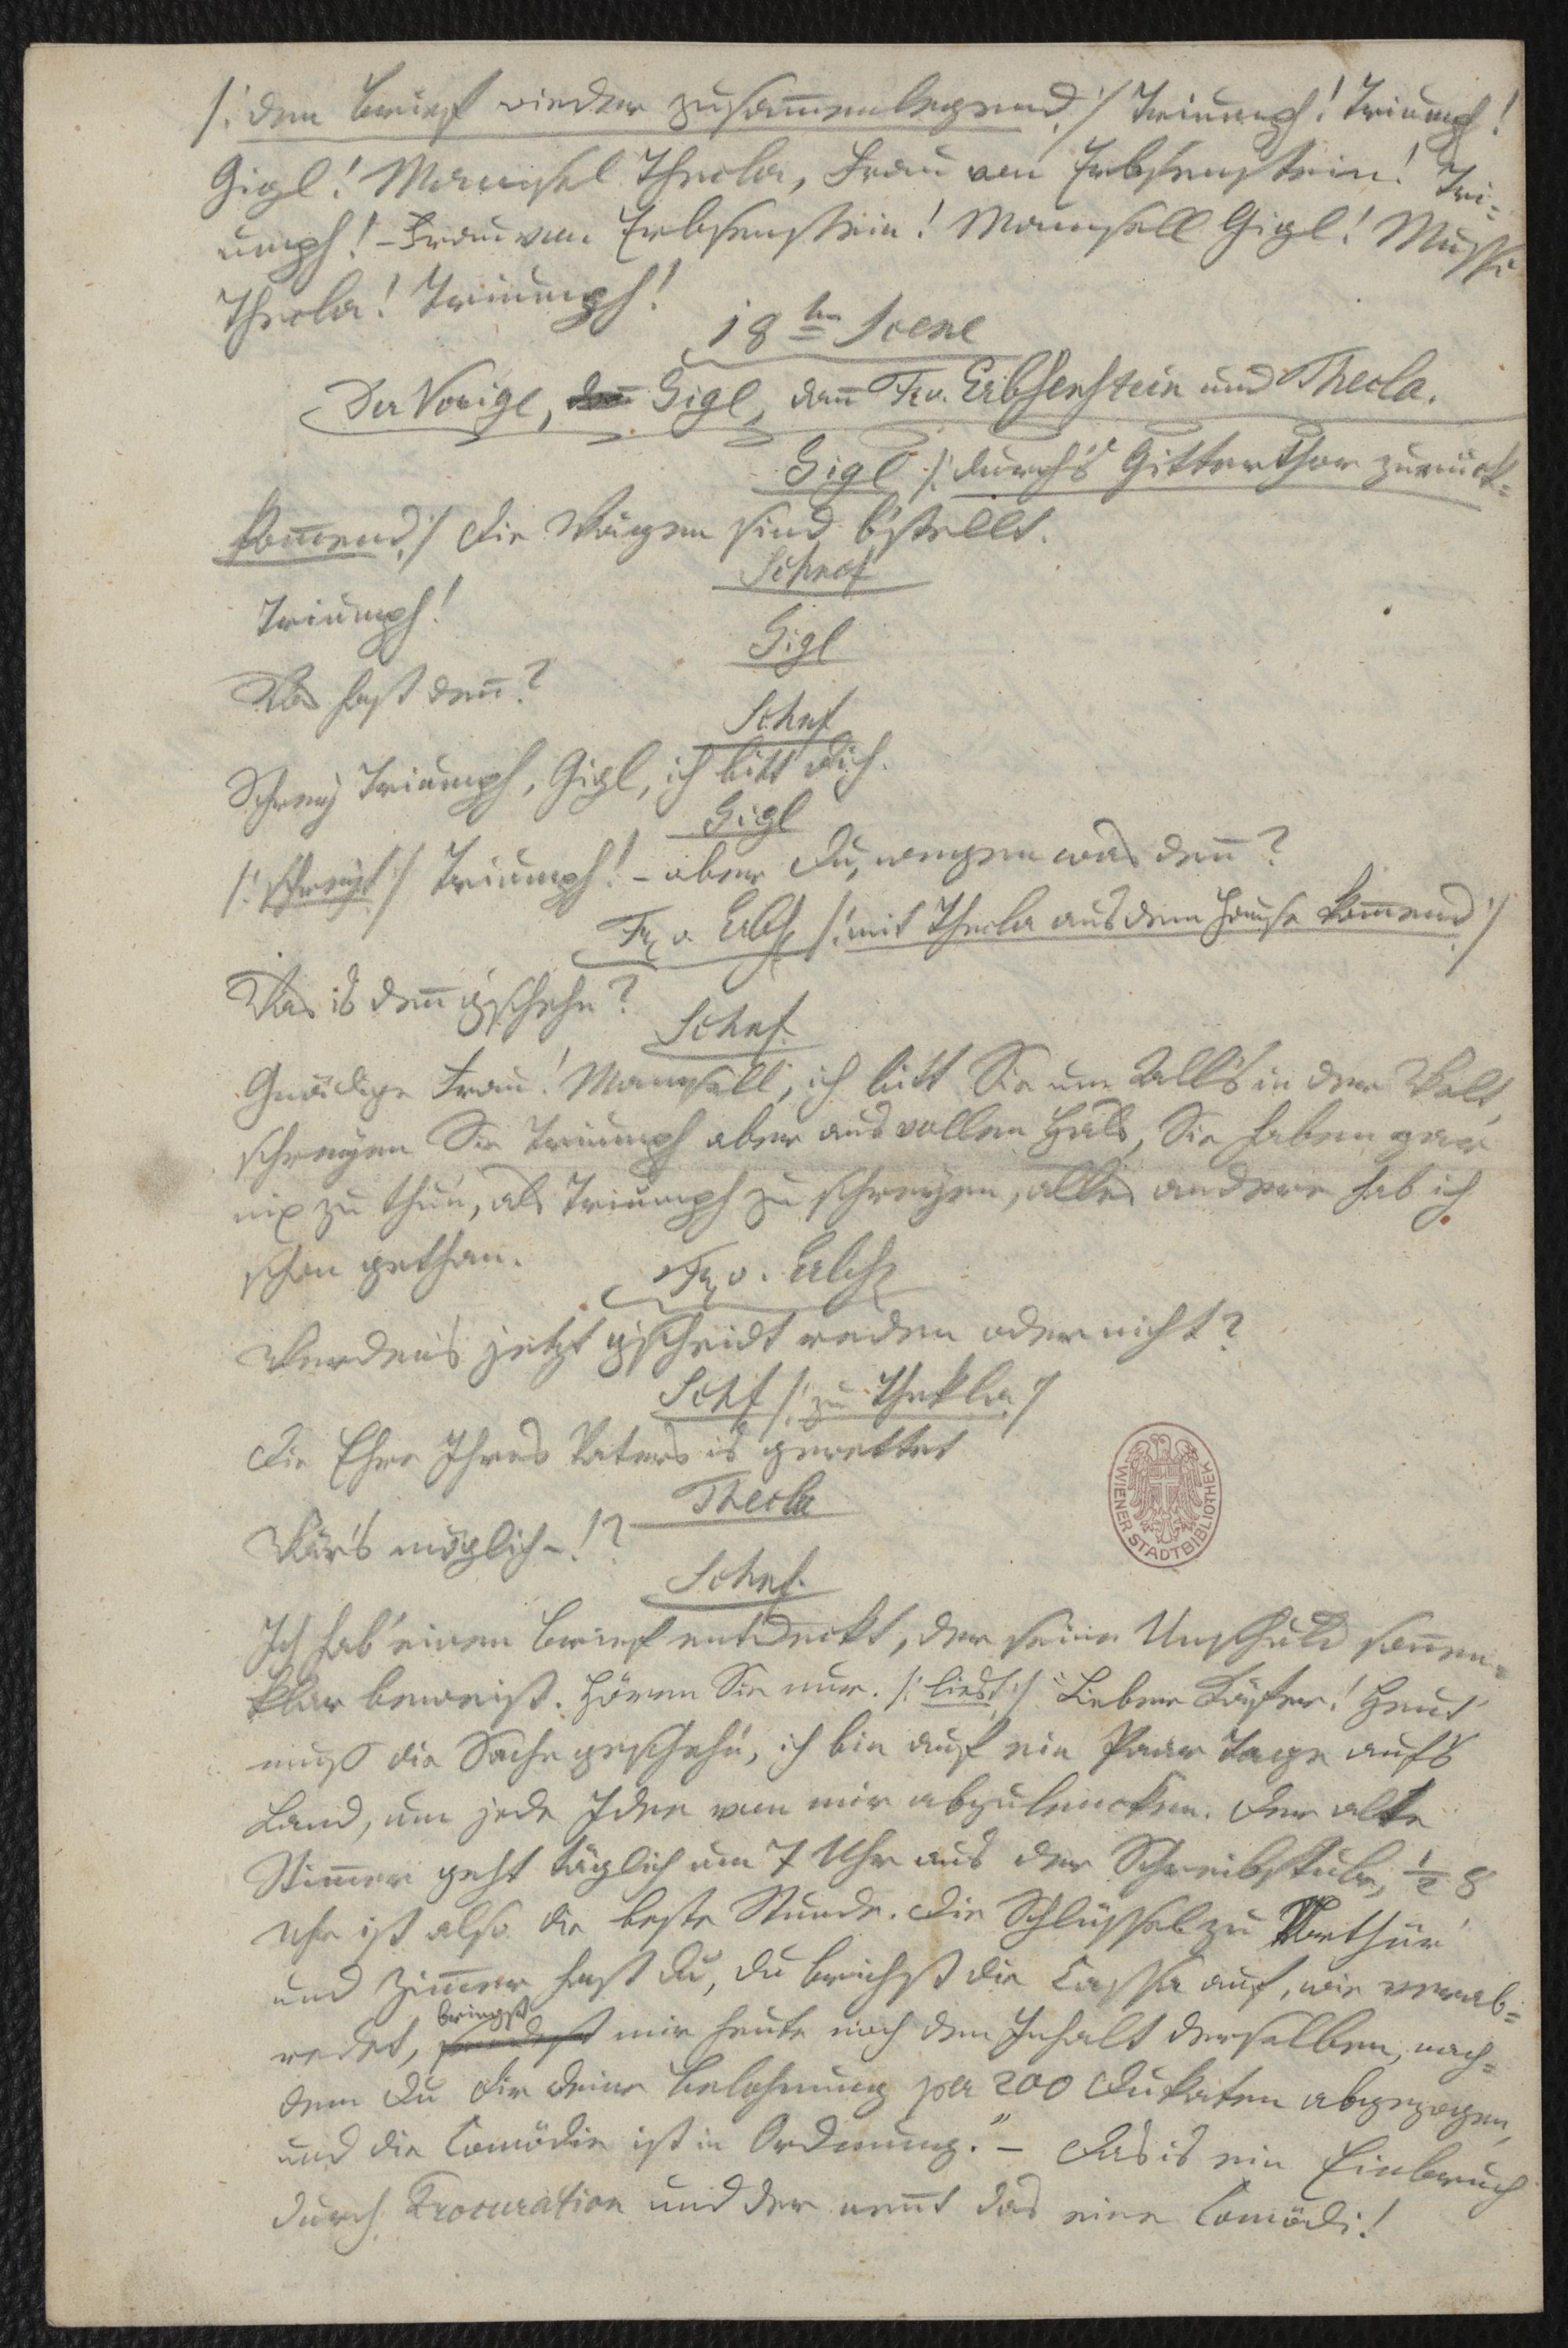 /: den Brief wieder zusam̄enlegend :/ Triumph! Triumph!
Gigl! Mamsell Thecla, Frau von Erbsenstein! Tri=
umph! – Frau von Erbsenstein! Mamsell Gigl! Mussi
Thecla! Triumph!
18te Scene
Der Vorige, Gigl, dan̄ Fr v. Erbsenstein und Thecla.
Gigl /: durch's Gitterthor zurück=
kom̄end :/ Die Wägen sind b'stellt.
Schnof
Triumph!
Gigl
Was hast den̄?
Schnf
Schrey Triumph, Gigl, ich bitt dich.
Gigl
/: schreyt :/ Triumph! – aber du, wegen was den̄?
Fr v. Erbs /: mit Thecla aus dem Hause kom̄end :/
Was is den̄ g'schehn?
Schnf.
Gnädige Frau! Mamsell, ich bitt Sie um Alls in der Welt,
schreyen Sie Triumph aber aus vollen Hals, Sie haben gar
nix zu thun, als Triumph zu schreyen, alles andere hab ich
schon gethan.
Fr v. Erbs
Werden's jetzt g'scheidt reden oder nicht?
Schf /: zu Thekla :/
Die Ehre Ihres Vaters is gerettet
Thecla
Wär's möglich –!?
Schnf.
Ich hab' einen Brief entdeckt, der seine Unschuld son̄en=
klar beweist. Hören Sie nur. /: liest :/ "Lieber Käfer! Heut'
muß die Sache geschehn, ich bin auf ein Paar Tage auf's
Land, um jede Idee von mir abzulencken. Der alte
Stim̄er geht täglich um 7 Uhr aus der Schreibstube, ½ 8
Uhr ist also die beste Stunde. Die Schlüssel zu Vorthür
und Zim̄er hast du, du brichst die Cassa auf, wie verab=
redet, bringst mir heute noch den Inhalt derselben, nach=
dem du dir deine Belohnung per 200 Dukaten abgezogen,
und die Comödie ist in Ordnung." – Das is ein Einbruch
durch Procuration und der nen̄t das eine Comödi!
WIENER STADTBIBLIOTHEK